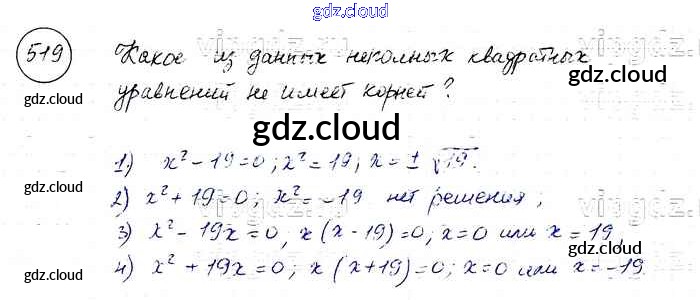 gdz.cloud
519 Какое из данных неполных квадратных
gdz.cloud gdz.cloud
уравнений не имеет корней?
gdz.cloud
1) x² - 19 = 0; x² = 19; x = ± √19.
2) x² + 19 = 0; x² = -19 нет решения;
3) x² - 19x = 0, x (x - 19) = 0; x = 0 или x = 19,
gdz.cloud gdz.cloud
4) x² + 19x = 0; x (x + 19) = 0; x = 0 или x = -19